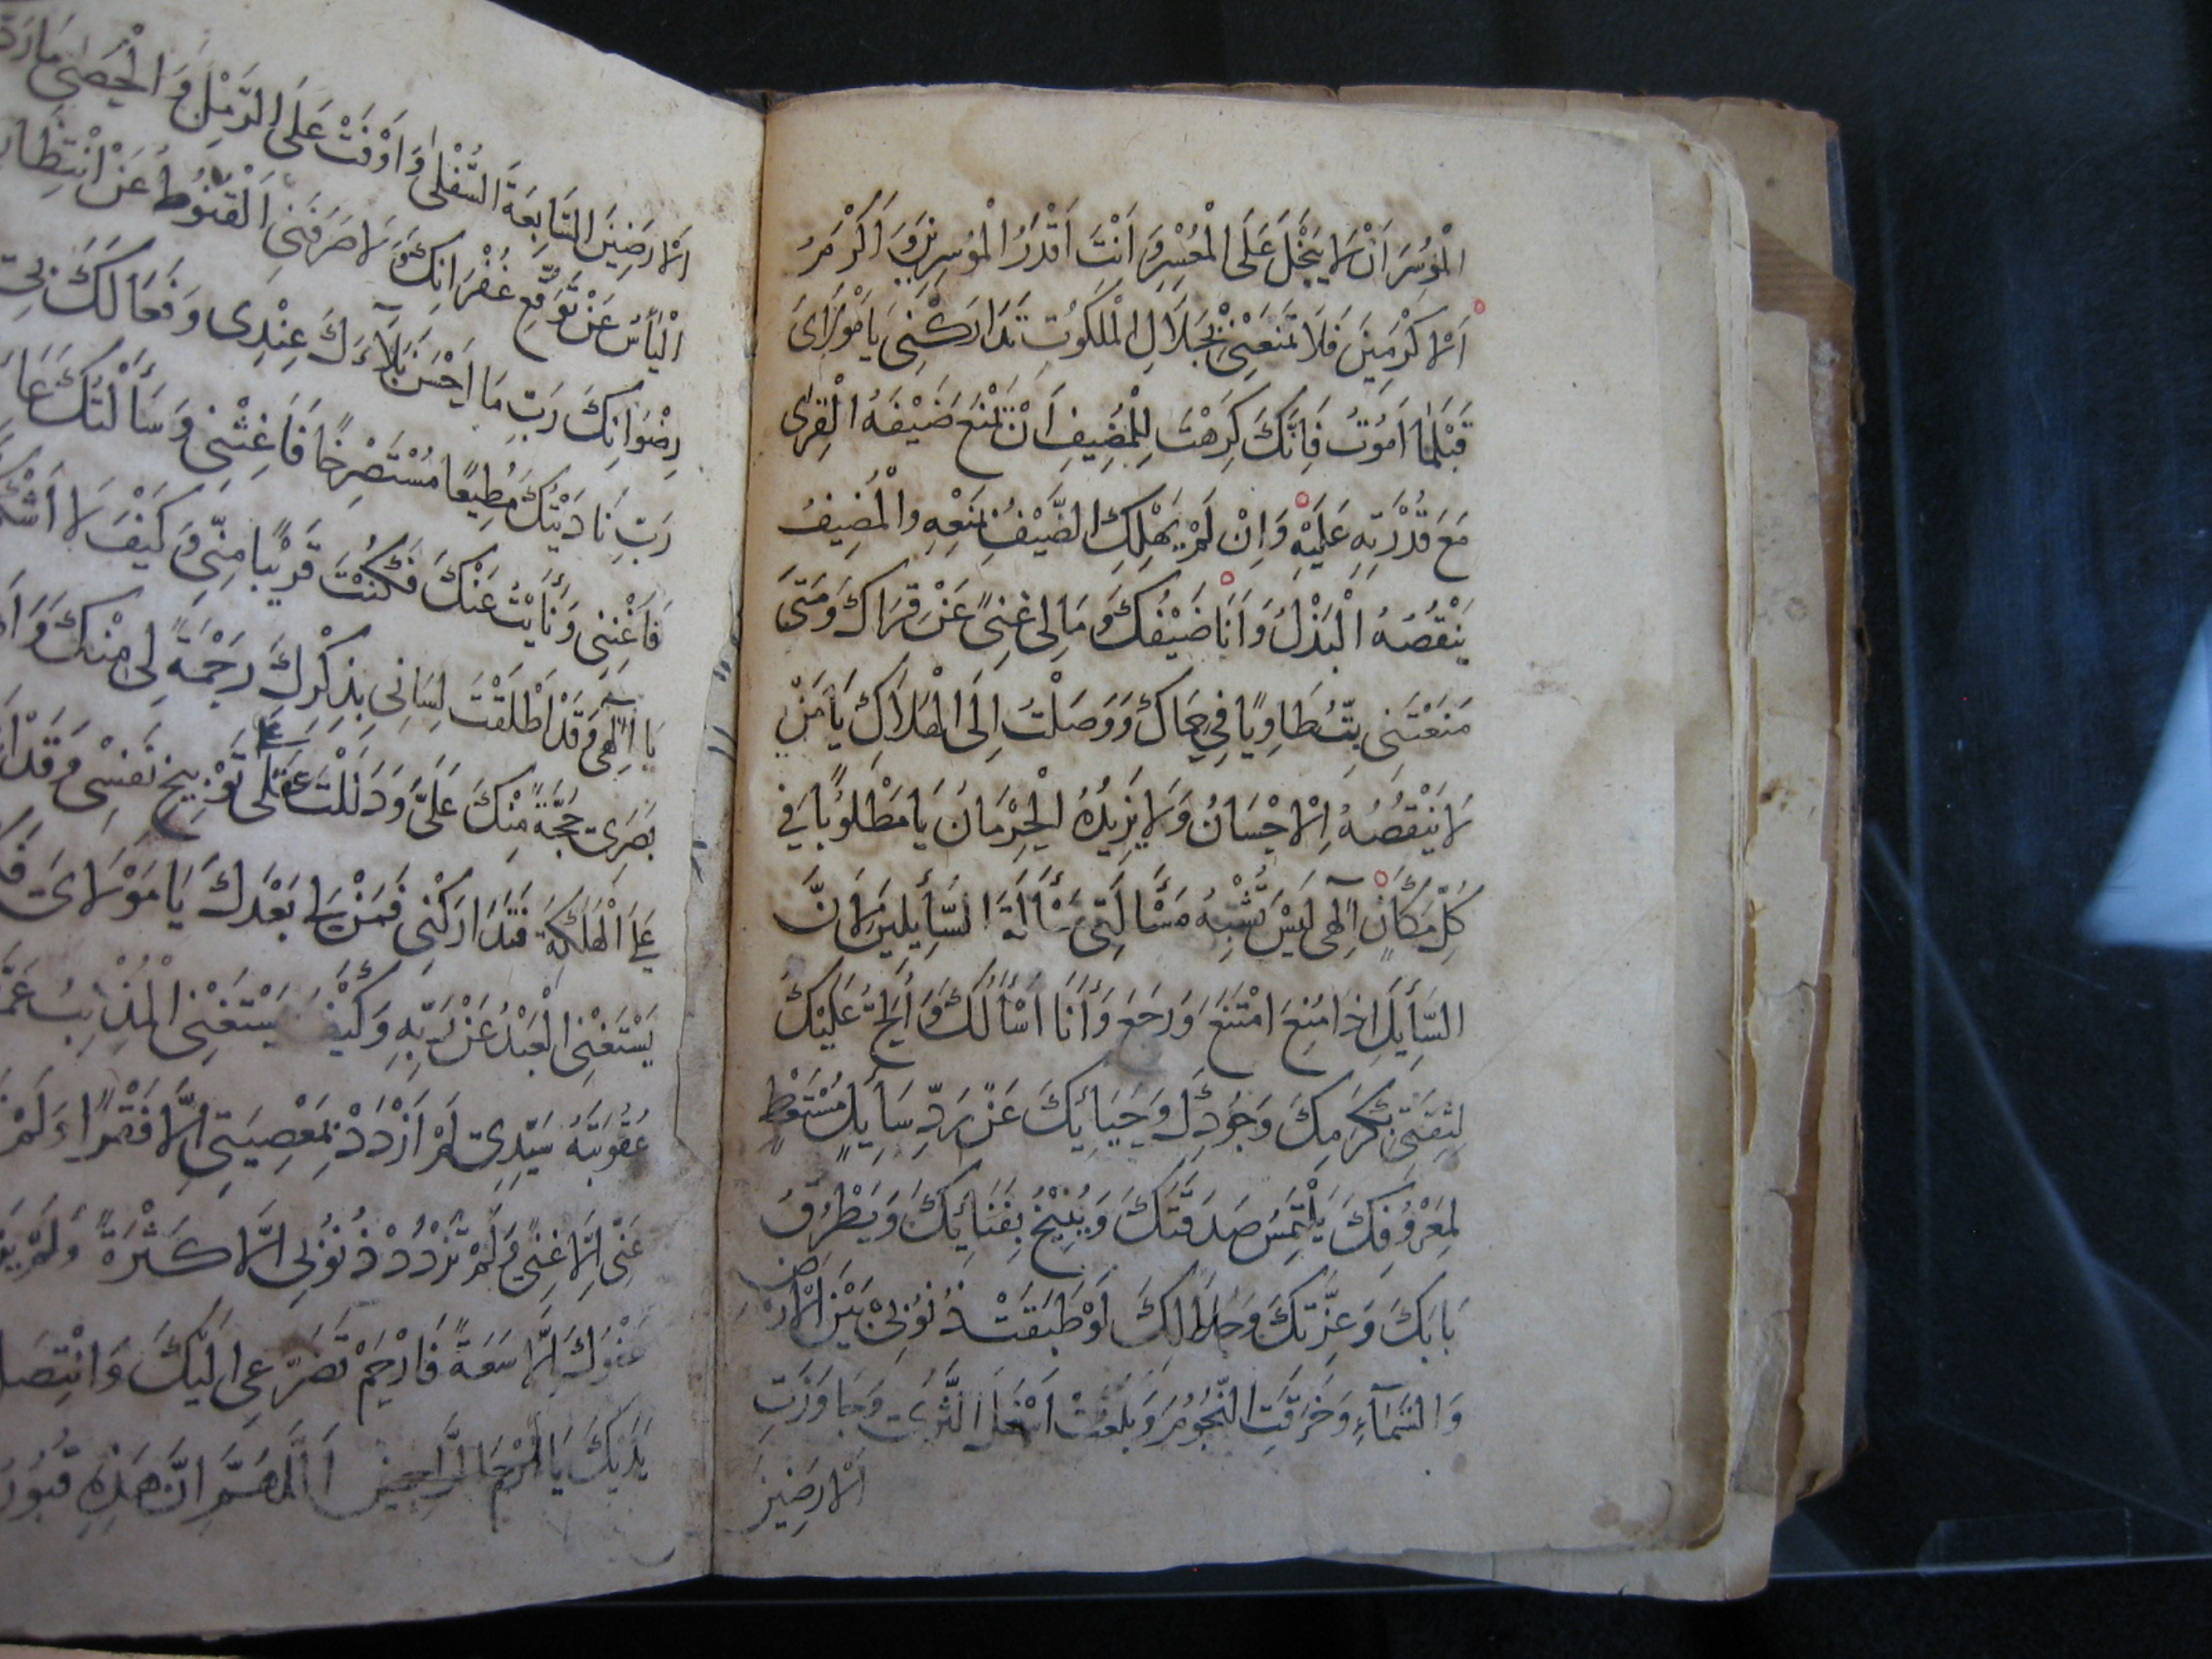 الْمُوسَرَ اَنْ لَا يَبْخَلَ عَلَى الْمُعْسِرِ وَ اَنْتَ اَقْدَرُ الْمُوسِرِينَ وَ اَكْرَمُ
اَلْاَكْرَمِينَ فَلَا تَمْنَعْنِىْ بِجَلَالِ الْمَلَكُوتِ تَدَارَكْنِى يَا مَوْلَاىَ
قَبْلَمَا اَمُوتُ فَاِنَّكَ كَرِهْتَ لِلْمُضِيفِ اَنْ يَمْنَعَ ضَيْفَهُ الْقِرٰى
مَعَ قُدْرَتِهِ عَلَيْهِ وَاِنْ لَمْ يَهْلِكِ الضَّيْفُ بِمَنْعِهِ والْمُضِيفُ
يَنْقُصُهُ اَلْبَذْلُ وَ اَنَا ضَيْفُكَ وَ مَا لِى غِنىً عَنْ قِرَاكَ وَ مَتىَ
مَنَعْتَنِى بِتُّ طَاوِيًا فِى حِمَاكَ وَ وَصَلْتُ اِلَى الْهَلَاكِ يَا مَنْ
لَا يَنْقُصُهُ اِلْاحْسَانُ وَ لَا يَزِيدُهُ الْحِرْمَانَ يَا مَطْلُوبًا فِى
كُلِّ مَكَانٍ اِلٰهِى لَيْسَ تُشْبِهُ مَسْأَلَتِى مَسْأَلَةَ السَّأِيلِينَ لِاَنَّ
السَّأِيلَ اِذَا مُنِعَ امْتَنَعَ وَ رَجَعَ وَ أَنَا اَسْأَلُكَ وَ اُلِحُّ عَلَيْكَ
لِثِقَتِى بِكَرَمِكَ وَ جُودِكَ وَ حَيَائِكَ عَنْ رَدِّ سَأِيلٍ مُسْتَعْطٍ
لِمَعْرُوفِكَ يَلْتَمِسُ صَدَقَتَكَ وَ يُنِيخُ بِفَنَائِكَ وَ يَطْرُقُ
بَابَكَ وَ عِزَّتِكَ وَ جَلَالِكَ لَوْ طَبَقَتْ ذُنُوبِىْ بَيْنَ الْاَرْضِ
وَ السَّمَآءِ وَ خَرَقَتِ النُّجُومَ وَ بَلَغَتْ اَسْفَلَ الثَّرٰى وَ جَاوَزَتِ
اَلْارَضِينَ
اَلْارَضِينَ السَّابِعَةَ السُّفْلٰى وَ اَوْفَتْ عَلَى الرَّمْلِ وَ الْحَصٰى مَا رَدَّ
الْيَأسُ عَنْ تَوَقُّعِ غُفْرَانِكَ وَ لَا صَرَفَنِى اَلْقُنُوطُ عَنْ انْتِظَارِ
رِضْوَانِكَ رَبِّ مَا اَحْسَنَ بَلَآءَكَ عِنْدِى وَ فَعَالَكَ بِى
رَبِّ نَادَيْتُكَ مُطِيعًا مُسْتَصْرِخًا فَاَغِثْنِى وَ سَأَلْتُكَ عَا
فَاَغْنِنِى وَ نَأَيْتُ عَنْكَ فَكُنْتَ قَرِيْبًا مِنّى وَ كَيْفَ لَا اَشْكُ
يَا اِلٰهِى وَ قَدْ اَطْلَقْتَ لِسَانِى بِذِكْرِكَ رَحْمَةً لِى مِنْكَ وَ اَ
بَصَرِى حُجَّةً مِنْكَ عَلَىَّ وَ دَلَلْتَ عَقْلِى عَلَى تَوْبِيخِ نَفْسِى وَ قَدْ
عَلَى اَلْهَلَكَةِ فَتَدَارَكْنِى فَمَنْ لِى بَعْدَكَ يَا مَوْلَاىَ
يَسْتَغْنِى الْعَبْدُ عَنْ رَبِّهِ وَ كَيْفَ يَسْتَغْنِى الْمُذْنِبُ عَمَّنْ
عُقُوبَتَهُ سَيِّدِى لَمْ اَزْدَدْ بِمَعْصِيَتِى اِلَّا فَقْرًا وَ لَمْ
عَنّى اِلَّا غِنىً وَ لَمْ تَزْدَدْ ذُنُوبِى اِلَّا كَثْرَةً وَ لَمْ
عَفْوُكَ اِلَّا سَعَةً فَارْحَمْ تَضَرُّعِى اِلَيْكَ وَ انْتِصَا
يَدَيْكَ يَا اَرْحَمَ الرَّاحِمِينَ اَللّٰهُمَّ اِنَّ هَذِهِ قُبُورُ